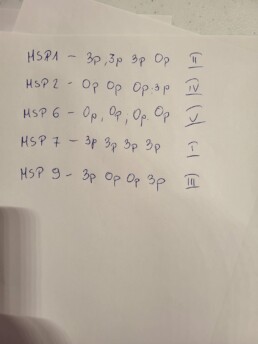 MSP1 - 3p, 3p 3p 0p II
MSP 2 - 0p 0p 0p 3p IV
MSP 6 - 0p, 0p, 0p, 0p V
MSP 7 - 3p 3p 3p 3p I
MSP 9 - 3p 0p 0p 3p III